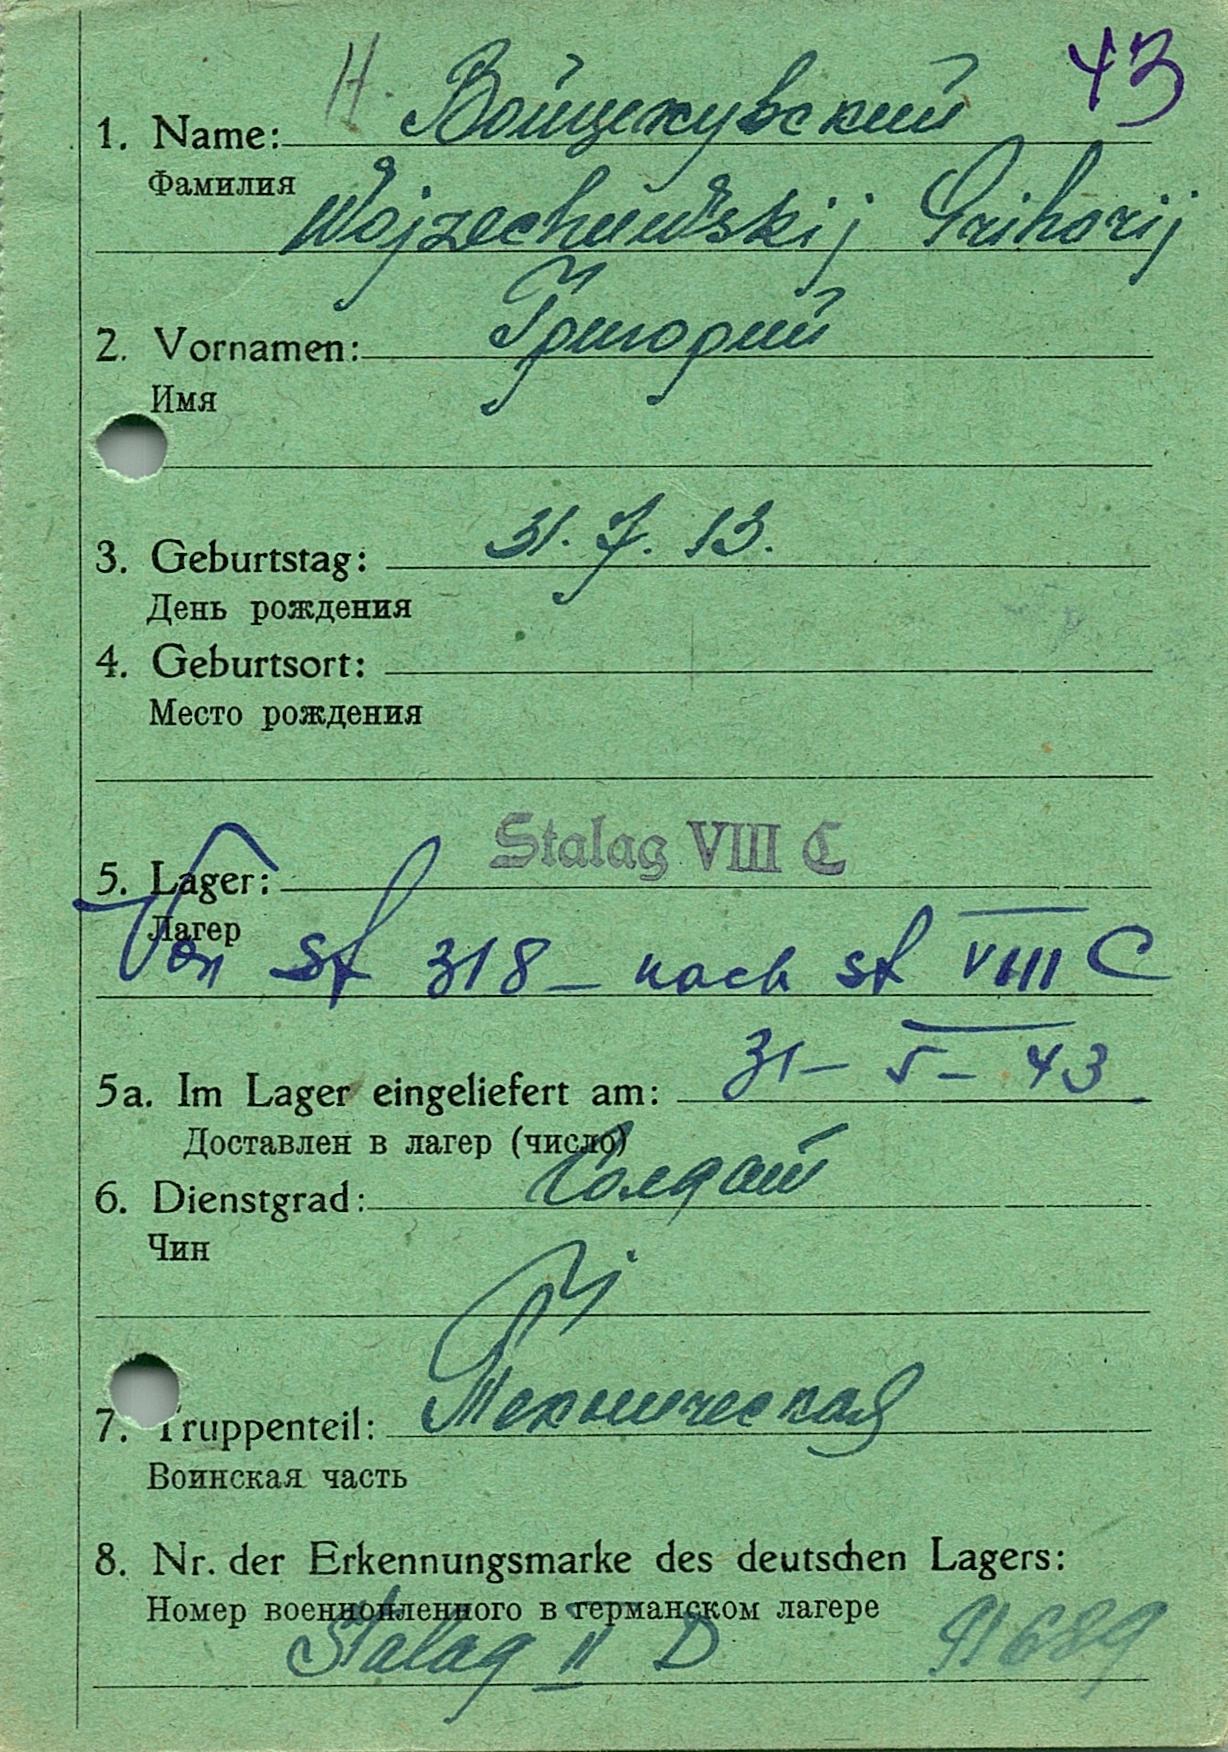 43
H. Войцехувский
1. Name:
Фамилия
Wojzechuwskij Grihorij
Григорий
2. Vornamen:
Имя
31. 7. 13.
3. Geburtstag:
День рождения
4. Geburtsort:
Место рождения
Stalag VIII C
5. Lager:
Лагер
Von St 318 - nach st VIII C
31 - 5 - 43
5a. Im Lager eingeliefert am:
Доставлен в лагер (число)
Солдат
6. Dienstgrad:
Чин
Техническая
7. Truppenteil:
Воинская часть
8. Nr. der Erkennungsmarke des deutschen Lagers:
Номер военнопленного в германском лагере
Stalag II D 91689